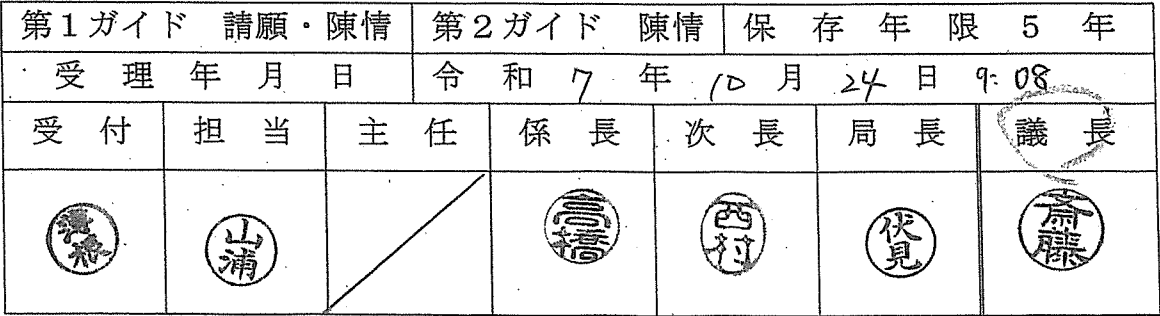 第1ガイド 請願・陳情 第2ガイド 陳情 保存年限 5年
受理年月日 令和7年10月24日 9:08
受付 担当 主任 係長 次長 局長 議長
山浦 高橋 西村 伏見 斎藤